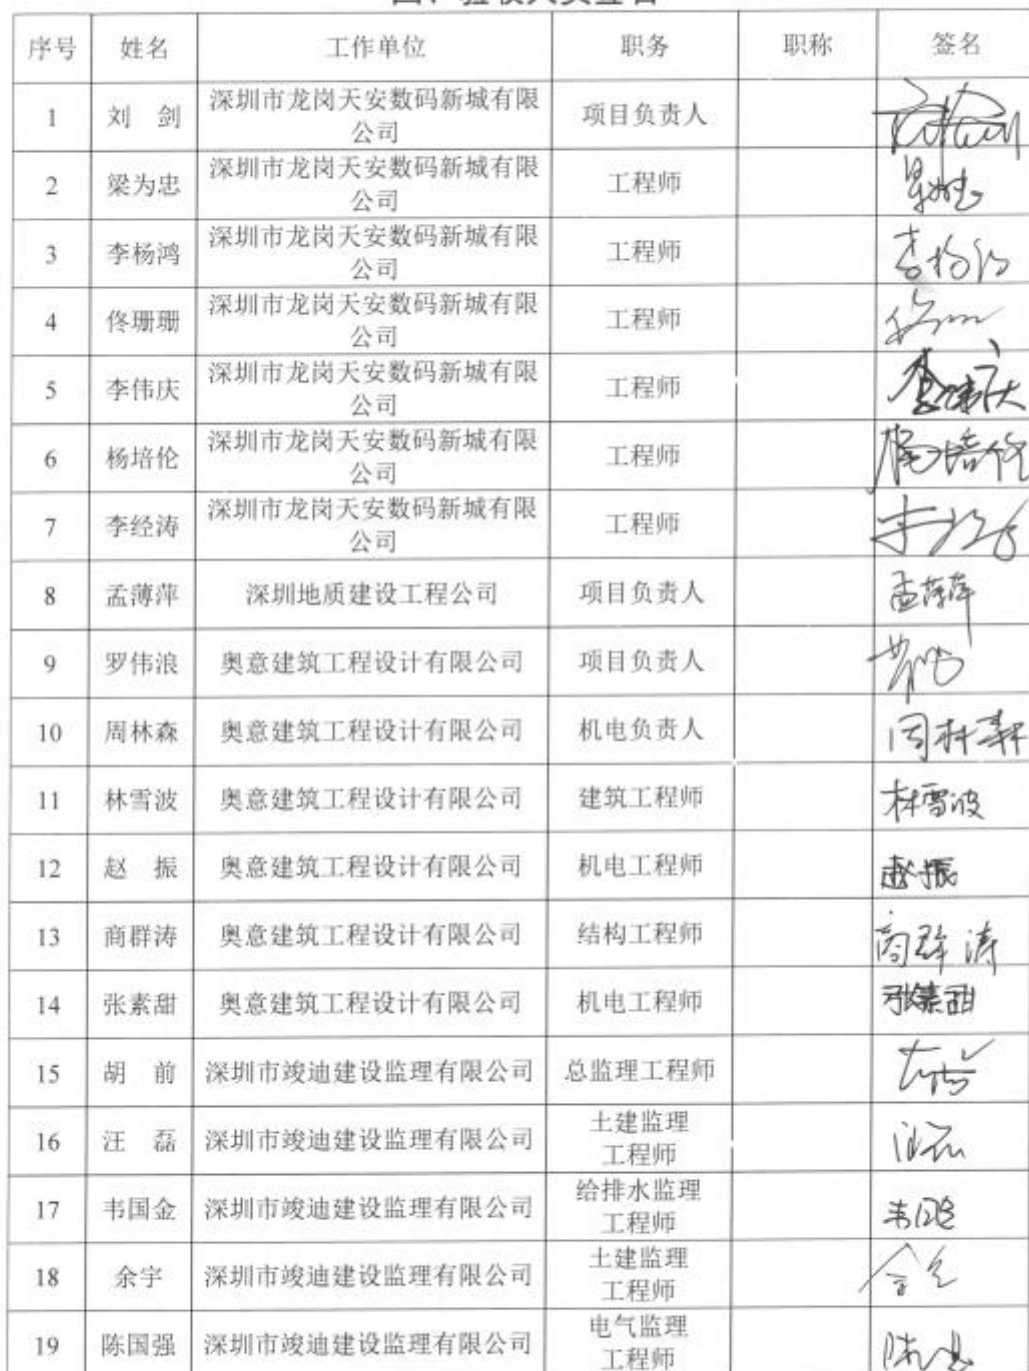 四、验收人员签名
序号 姓名 工作单位 职务 职称 签名
1 刘 剑 深圳市龙岗天安数码新城有限公司 项目负责人
2 梁为忠 深圳市龙岗天安数码新城有限公司 工程师
3 李杨鸿 深圳市龙岗天安数码新城有限公司 工程师
4 佟珊珊 深圳市龙岗天安数码新城有限公司 工程师
5 李伟庆 深圳市龙岗天安数码新城有限公司 工程师 李伟庆
6 杨培伦 深圳市龙岗天安数码新城有限公司 工程师 杨培伦
7 李经涛 深圳市龙岗天安数码新城有限公司 工程师
8 孟薄萍 深圳地质建设工程公司 项目负责人 孟薄萍
9 罗伟浪 奥意建筑工程设计有限公司 项目负责人
10 周林森 奥意建筑工程设计有限公司 机电负责人 周林森
11 林雪波 奥意建筑工程设计有限公司 建筑工程师 林雪波
12 赵 振 奥意建筑工程设计有限公司 机电工程师 赵振
13 商群涛 奥意建筑工程设计有限公司 结构工程师 商群涛
14 张素甜 奥意建筑工程设计有限公司 机电工程师 张素甜
15 胡 前 深圳市竣迪建设监理有限公司 总监理工程师
16 汪 磊 深圳市竣迪建设监理有限公司 土建监理工程师
17 韦国金 深圳市竣迪建设监理有限公司 给排水监理工程师
18 余宇 深圳市竣迪建设监理有限公司 土建监理工程师
19 陈国强 深圳市竣迪建设监理有限公司 电气监理工程师